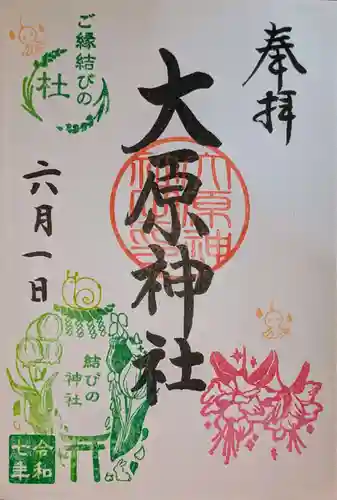 奉拝
大原神社
大原神社印
ご縁結びの
杜
六月一日
結びの
神社
令和
七年